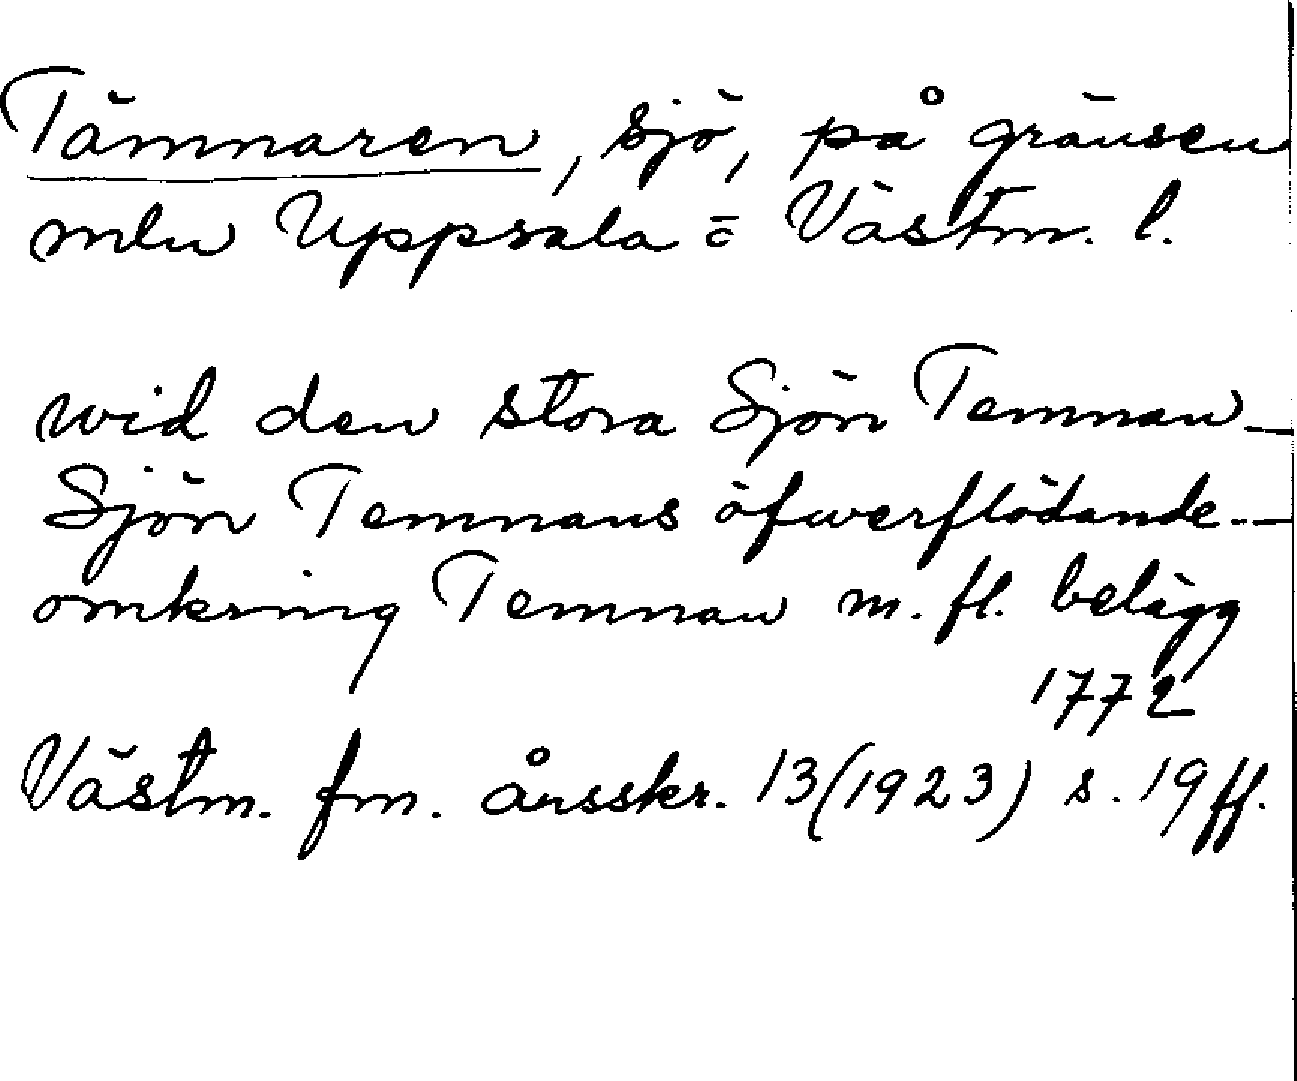 Tämnaren, sjö, på gränsen
mln Uppsala o Västm. l.
wid den stora Sjön Temnan -
Sjön Temnans öfwerflödande. -
omkring Temnan m. fl. belägg
1772
Västm. fm. årsskr. 13 (1923) s. 19 ff.